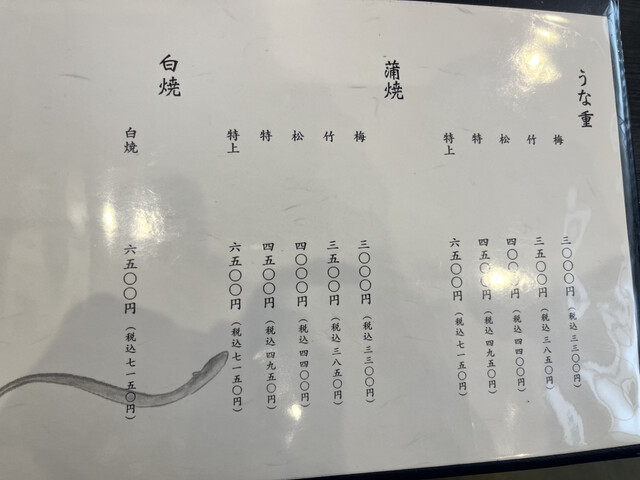 うな重
梅 三〇〇〇円（税込 三三〇〇円）
竹 三五〇〇円（税込 三八五〇円）
松 四〇〇〇円（税込 四四〇〇円）
特 四五〇〇円（税込 四九五〇円）
特上 六五〇〇円（税込 七一五〇円）
蒲焼
梅 三〇〇〇円（税込 三三〇〇円）
竹 三五〇〇円（税込 三八五〇円）
松 四〇〇〇円（税込 四四〇〇円）
特 四五〇〇円（税込 四九五〇円）
特上 六五〇〇円（税込 七一五〇円）
白焼
白焼 六五〇〇円（税込 七一五〇円）